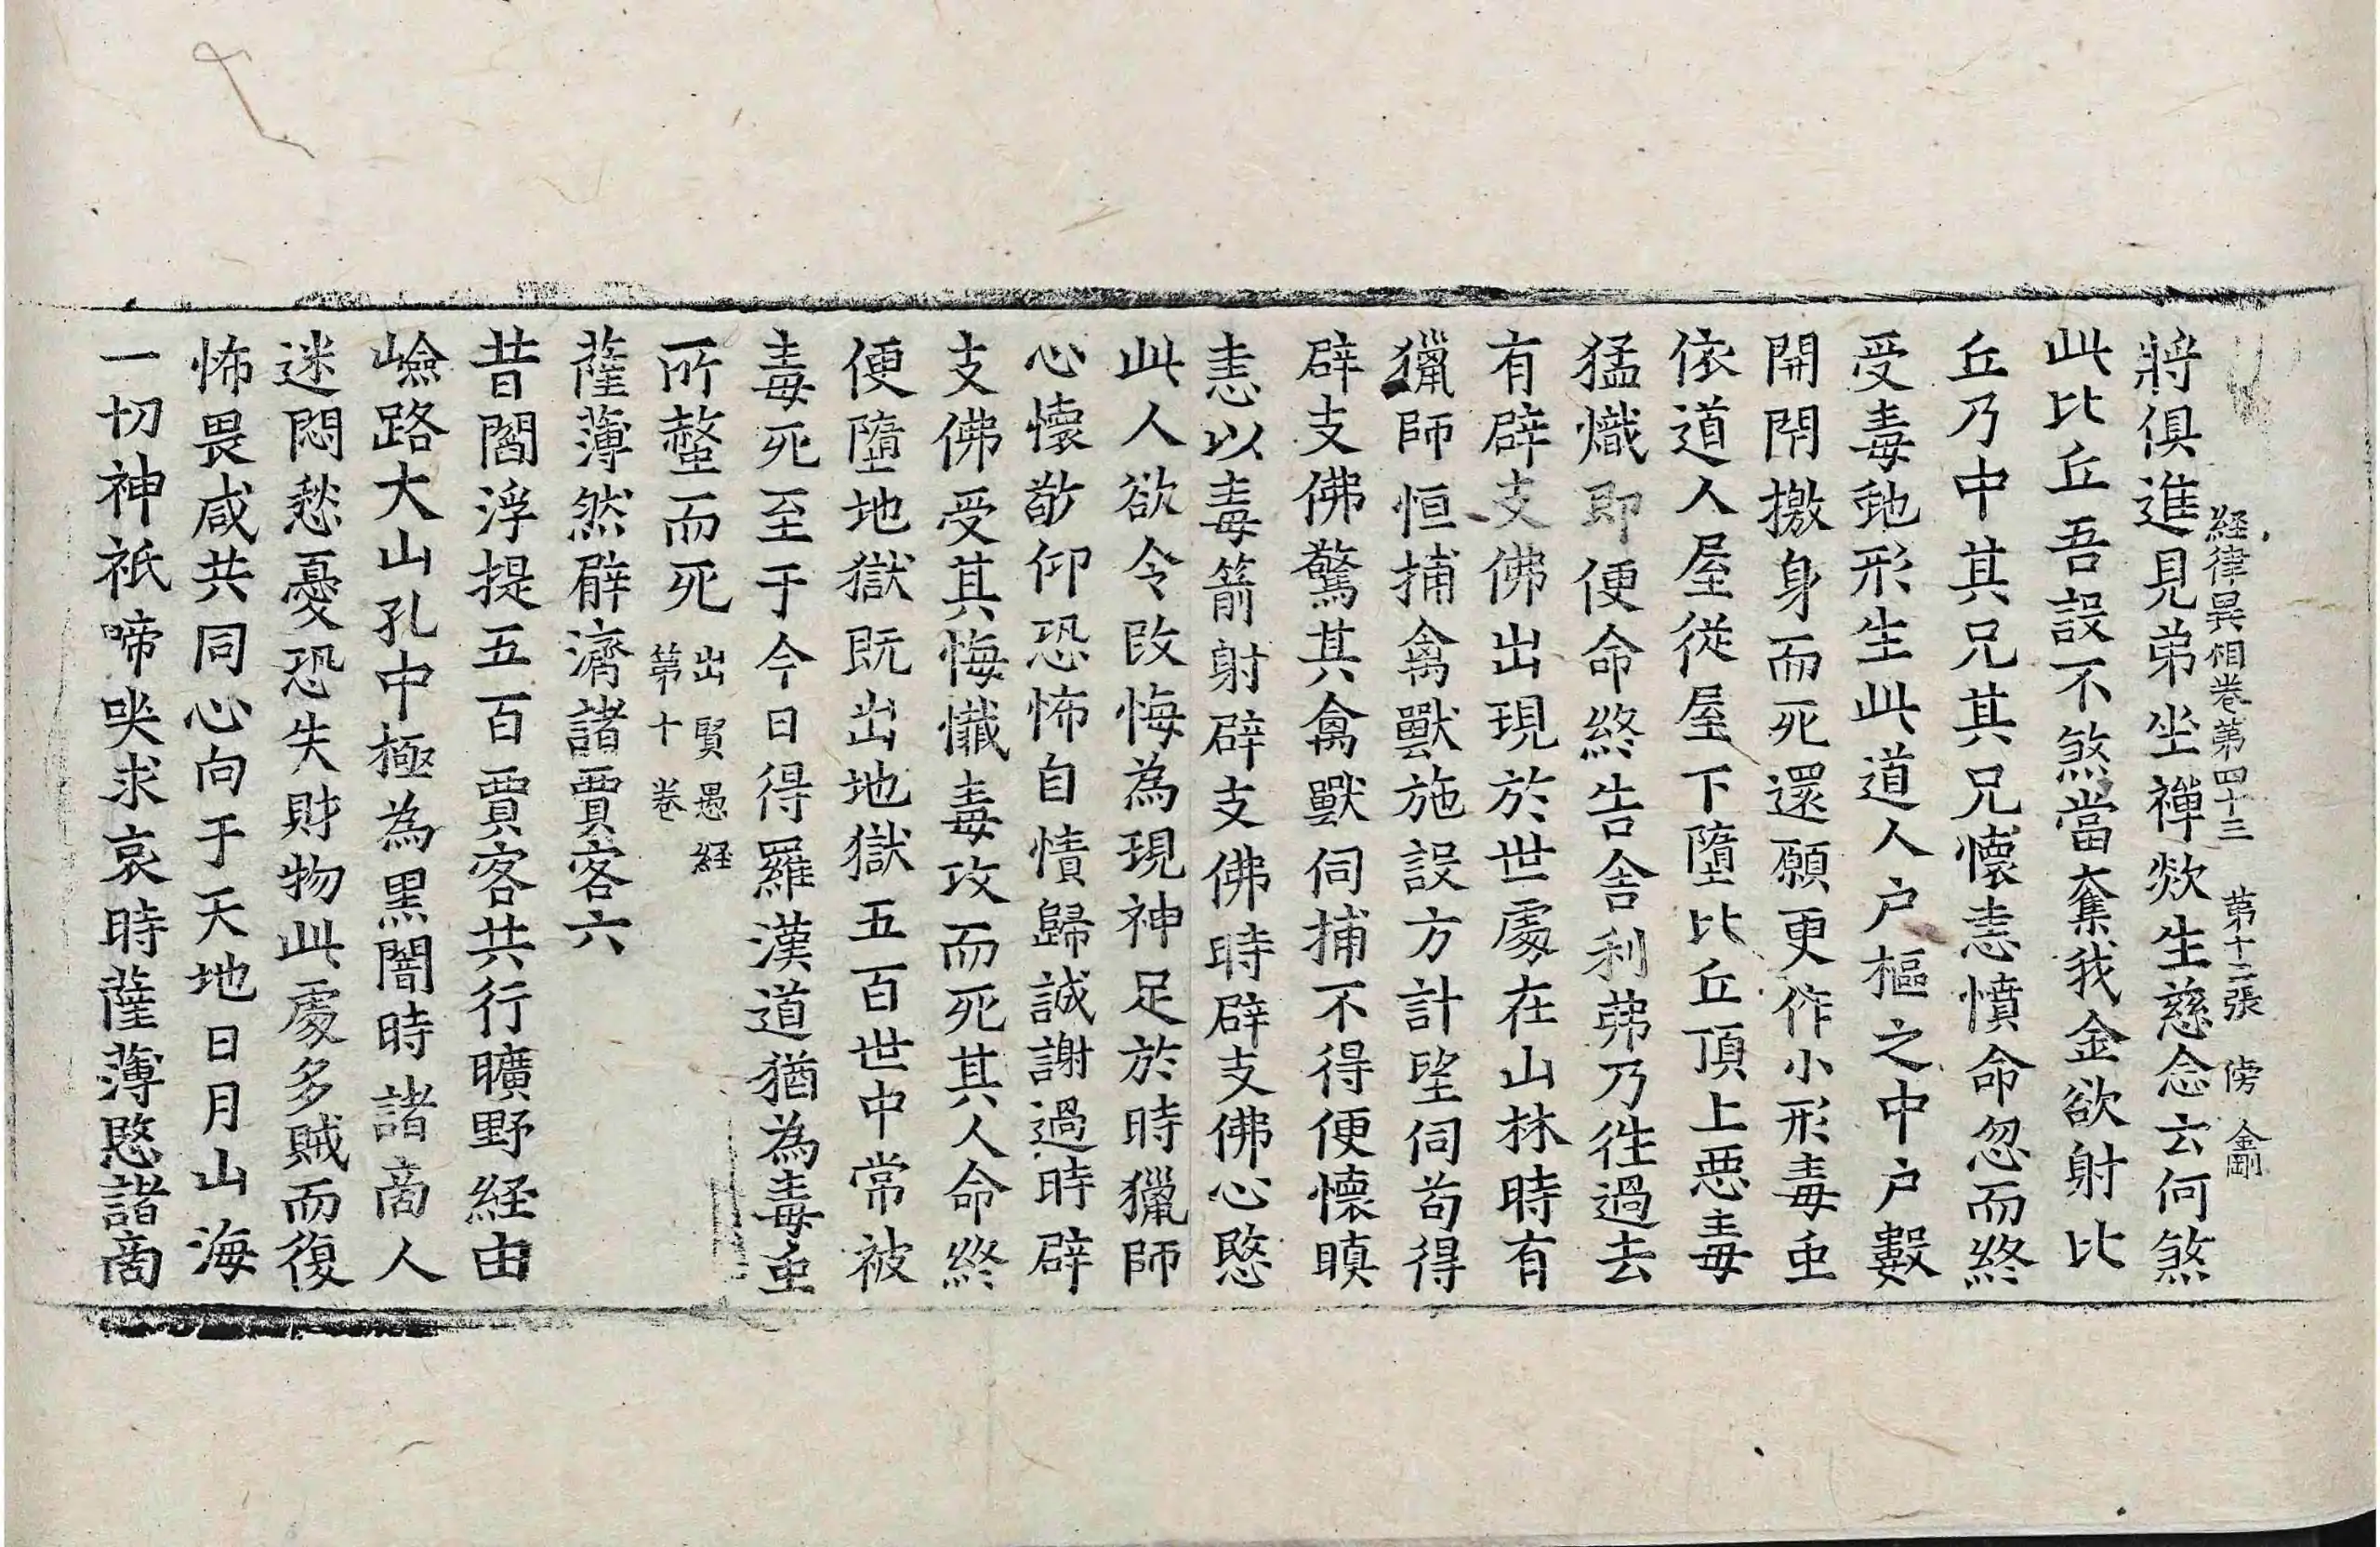 経律異相卷第四十三 第十二張 傍 金剛
將俱進見弟坐禪欻生慈念云何煞
此比丘吾設不煞當奪我金欲射比
丘乃中其兄其兄懷恚憤命忽而終
受毒虵形生此道人户樞之中户數
開閇撽身而死還願更作小形毒虫
依道人屋從屋下墮比丘頂上惡毒
猛熾即便命終告舍利弗乃往過去
有辟支佛出現於世處在山林時有
獵師恒捕禽獸施設方計望伺苟得
辟支佛驚其禽獸伺捕不得便懷瞋
恚以毒箭射辟支佛時辟支佛心愍
此人欲令改悔為現神足於時獵師
心懷敬仰恐怖自責歸誠謝過時辟
支佛受其悔懺毒攻而死其人命終
便墮地獄既出地獄五百世中常被
毒死至于今日得羅漢道猶為毒虫
所螫而死 出賢愚経
第十卷
薩薄然臂濟諸賈客六
昔閻浮提五百賈客共行曠野経由
嶮路大山孔中極為黒闇時諸商人
迷悶愁憂恐失財物此處多賊而復
怖畏咸共同心向于天地日月山海
一切神祇啼哭求哀時薩薄愍諸商